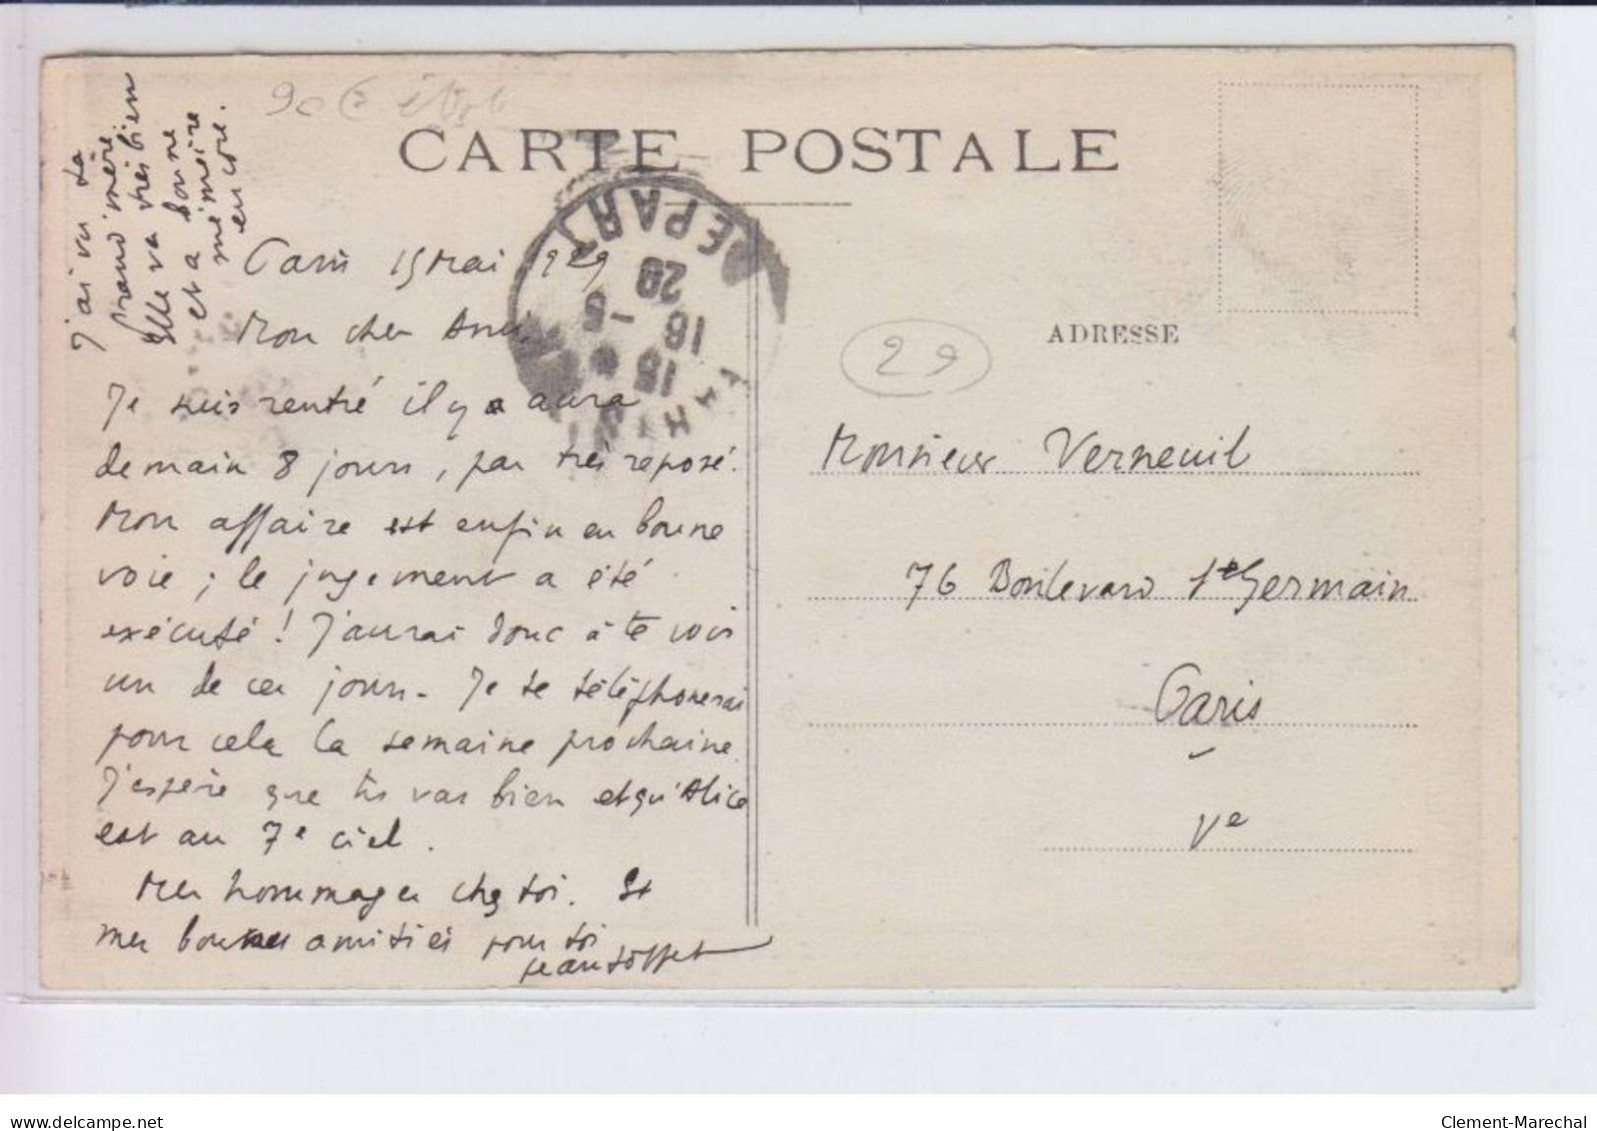 CARTE POSTALE
J'ai vu ta
grand'mère
elle va très bien
et a bonne
mémoire
encore.
Paris 15 Mai 1929
Mon cher Ami,
Je suis rentré il y a aura
demain 8 jours, pas très reposé.
Mon affaire est enfin en bonne
voie ; le jugement a été
exécuté ! J'aurai donc à te voir
un de ces jours. Je te téléphonerai
pour cela la semaine prochaine.
J'espère que tu vas bien et qu'Alice
est au 7e ciel.
Mes hommages chez toi. Et
mes bonnes amitiés pour toi
DEPART
15
16 - 5
29
ADRESSE
29
Monsieur Verneuil
76 Boulevard St Germain
Paris
Ve
www.delcampe.net
Clement-Marechal